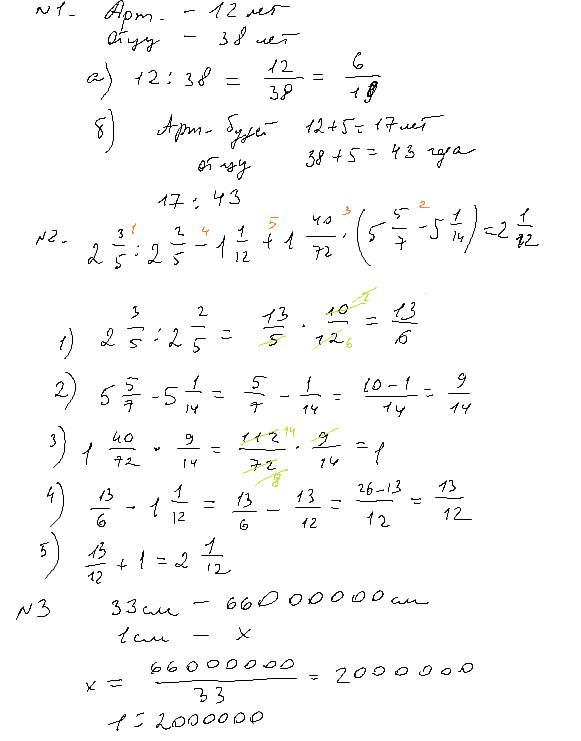 №1. Арт. – 12 лет
отцу – 38 лет
а) 12 : 38 = 12/38 = 6/19
б) Арт. будет 12+5=17 лет
отцу 38+5=43 года
17 : 43
№2. 2 3/5 : 2 2/5 - 1 1/12 + 1 40/72 · (5 5/7 - 5 1/14) = 2 1/12
1) 2 3/5 : 2 2/5 = 13/5 · 10/12 = 13/6
2) 5 5/7 - 5 1/14 = 5/7 - 1/14 = 10-1/14 = 9/14
3) 1 40/72 · 9/14 = 112/72 · 9/14 = 1
4) 13/6 - 1 1/12 = 13/6 - 13/12 = 26-13/12 = 13/12
5) 13/12 + 1 = 2 1/12
№3 33 см – 66000000 см
1 см – x
x = 66000000/33 = 2000000
1 : 2000000